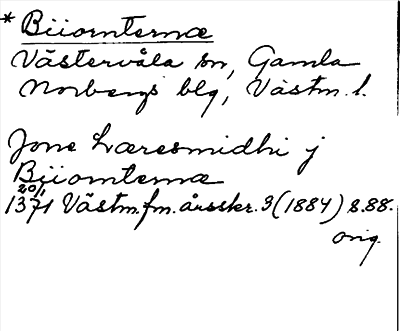 * Biiomternæ
Västervåla sn, Gamla
Norbergs blg, Västm. l.
Jone Læresmidhi j
Biiomternæ
20/1
1371 Västm. fm. årsskr. 3 (1884) s. 88.
orig.